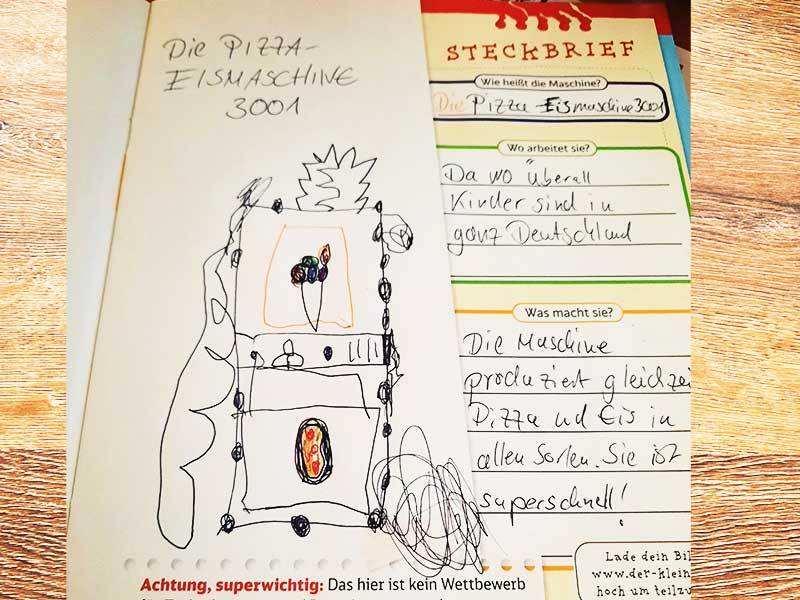 Die PIZZA-
EISMASCHINE
3001
STECKBRIEF
Wie heißt die Maschine?
Die Pizza Eismaschine 3001
Wo arbeitet sie?
Da wo überall
Kinder sind in
ganz Deutschland
Was macht sie?
Die Maschine
produziert gleichzei
Pizza und Eis in
allen Sorten. Sie ist
superschnell!
Lade dein Bil
www.der-klein
hoch um teilzu
Achtung, superwichtig: Das hier ist kein Wettbewerb